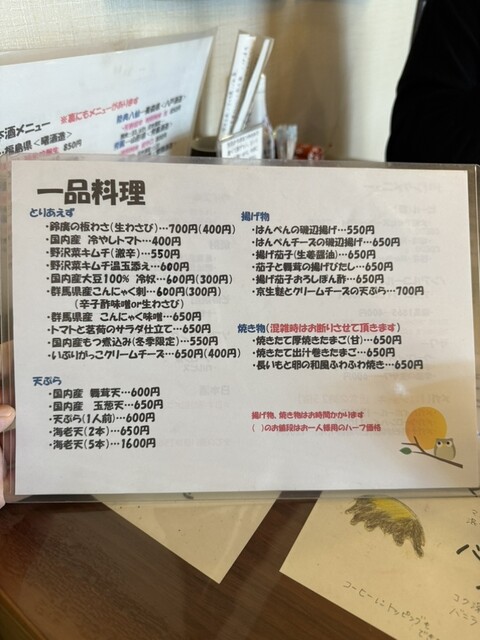 本酒メニュー
※裏にもメニューがあります
850円
一品料理
とりあえず
・鈴廣の板わさ(生わさび)…700円(400円)
・国内産 冷やしトマト…400円
・野沢菜キムチ(激辛)…550円
・野沢菜キムチ温玉添え…600円
・国内産大豆100% 冷奴…600円(300円)
・群馬県産こんにゃく刺…600円(300円)
(辛子酢味噌or生わさび)
・群馬県産 こんにゃく味噌…650円
・トマトと茗荷のサラダ仕立て…650円
・国内産もつ煮込み(冬季限定)…550円
・いぶりがっこクリームチーズ…650円(400円)
天ぷら
・国内産 舞茸天…600円
・国内産 玉葱天…650円
・天ぷら(1人前)…600円
・海老天(2本)…650円
・海老天(5本)…1600円
揚げ物
・はんぺんの磯辺揚げ…550円
・はんぺんチーズの磯辺揚げ…650円
・揚げ茄子(生姜醤油)…650円
・茄子と舞茸の揚げびたし…650円
・揚げ茄子おろしぽん酢…650円
・京生麩とクリームチーズの天ぷら…700円
焼き物(混雑時はお断りさせて頂きます)
・焼きたて厚焼きたまご(甘)…650円
・焼きたて出汁巻きたまご…650円
・長いもと卵の和風ふわふわ焼き…650円
揚げ物、焼き物はお時間かかります
( )のお値段はお一人様用のハーフ価格
コーヒーにトッピングも